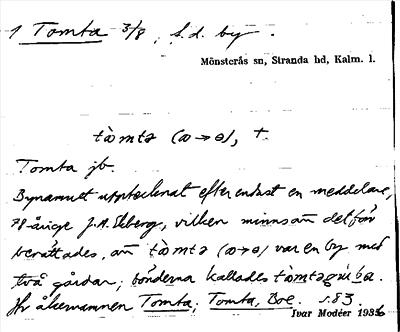 1 Tomta 3/8, s.d. by.
Mönsterås sn, Stranda hd, Kalm. l.
tὼmtə (ω→ɵ), +
Tomta jb.
Bynamnet upptecknat efter endast en meddelare,
78-årige J.A. Ekberg, vilken minns att det förr
berättades, att tὼmtə (ω→ɵ) var en by med
två gårdar; bönderna kallades
Jfr åkernamnen Tomta, Tomta, Boe. s. 83.
Ivar Modéer 1933